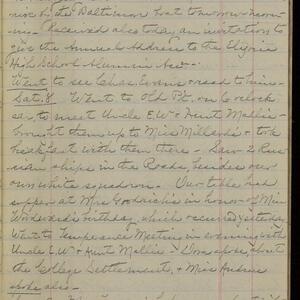 rive by the Baltimore boat tomorrow morn-
ing. Received also today an invitation to
give the Annual Address to the Elyria
High School Alumni Ass'n
Went to see Chas. Evans & read to him.
Sat. 8. Went to Old Pt. on 6 o'clock
car to meet Uncle E.W. & Aunt Mollie -
brought them up to Miss & took
breakfast with them there - Saw 2 Rus-
sian ships in the Roads, besides our
own white squadron. Our table had
supper at Mrs Goodrich's in honor of Miss
birthday, which occurred yesterday
Went to Temperance Meeting in evening with
Uncle E.W. & Aunt Mollie - spoke, about
the College Settlements, & Miss Andrus
spoke also -